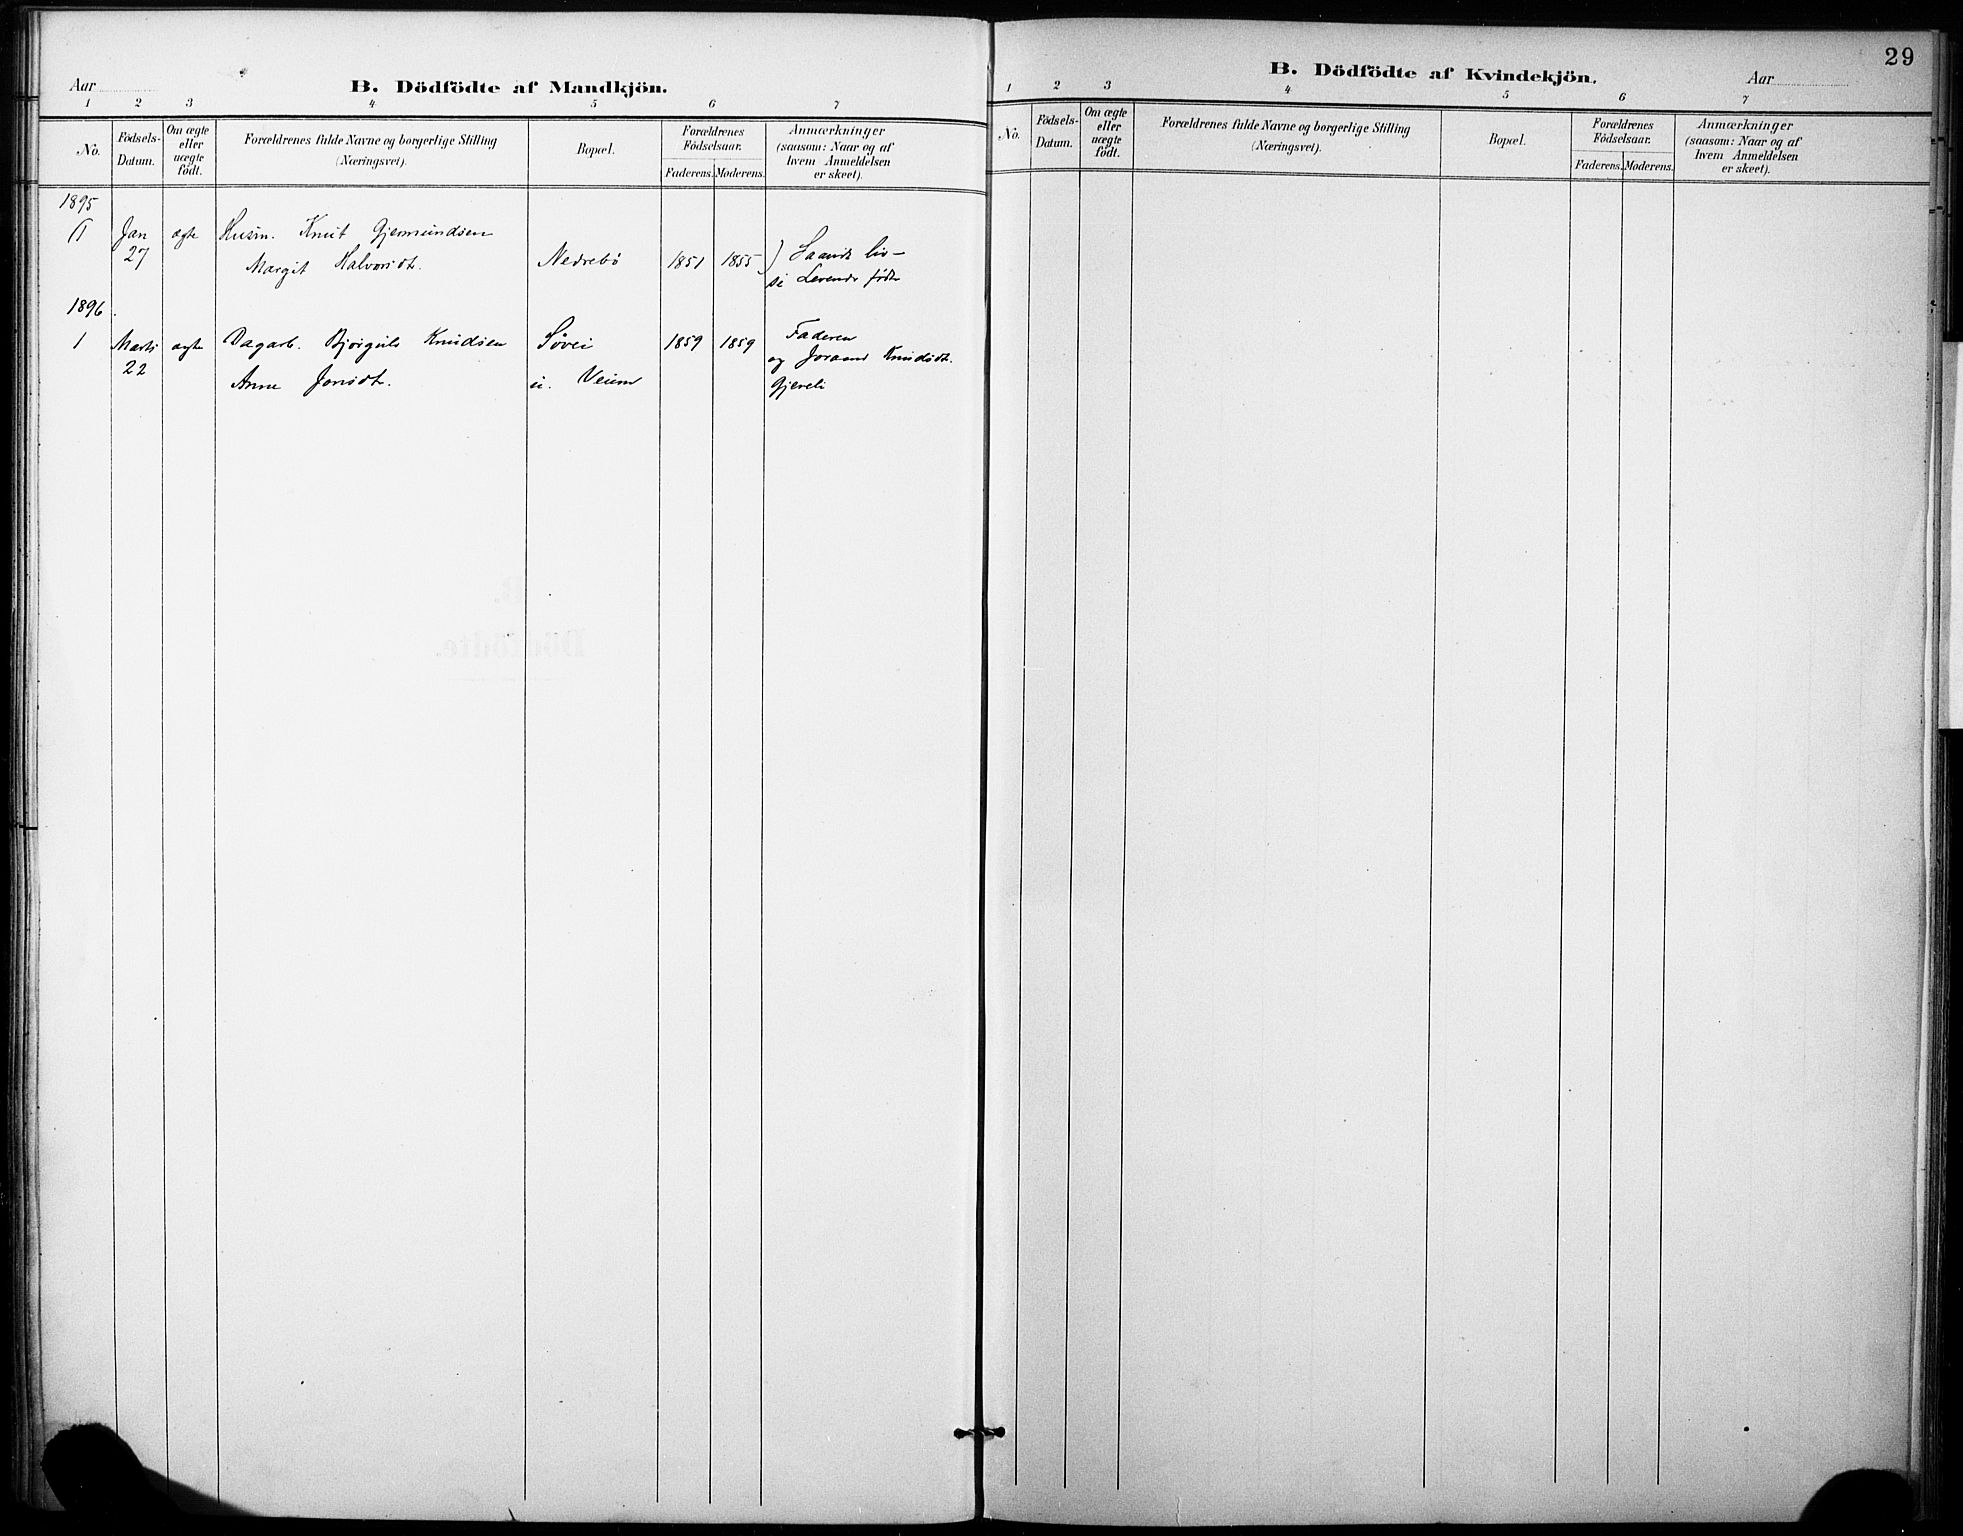 Aar
B. Dödfödte af Mandkjön.
1 2 3 4 5 6 7
No.
Födsels-
Datum.
Om ægte
eller
uægte
födt.
Forældrenes fulde Navne og borgerlige Stilling
(Næringsvei).
Bopæl.
Forældrenes
Födselsaar.
Faderens. Moderens.
Anmærkninger
(saasom: Naar og af
hvem Anmeldelsen
er skeet).
1895
Jan ægte Husm. Knut Gjermundsen
27 Margit Halvorsdt. Nedrebö 1851 1855 ) Haandt liv-
se Levende födte
1896.
1 Marts ægte Dagarb. Bjørgulv Knudsen 1859 1859 Faderen
22 Anne Jonsdt. u. Veum og Joraand Knudsdt.
Gjerveli
29
B. Dödfödte af Kvindekjön.
Aar
1 2 3 4 5 6 7
No.
Födsels-
Datum.
Om ægte
eller
uægte
födt.
Forældrenes fulde Navne og borgerlige Stilling
(Næringsvei).
Bopæl.
Forældrenes
Födselsaar.
Faderens. Moderens.
Anmærkninger
(saasom: Naar og af
hvem Anmeldelsen
er skeet).